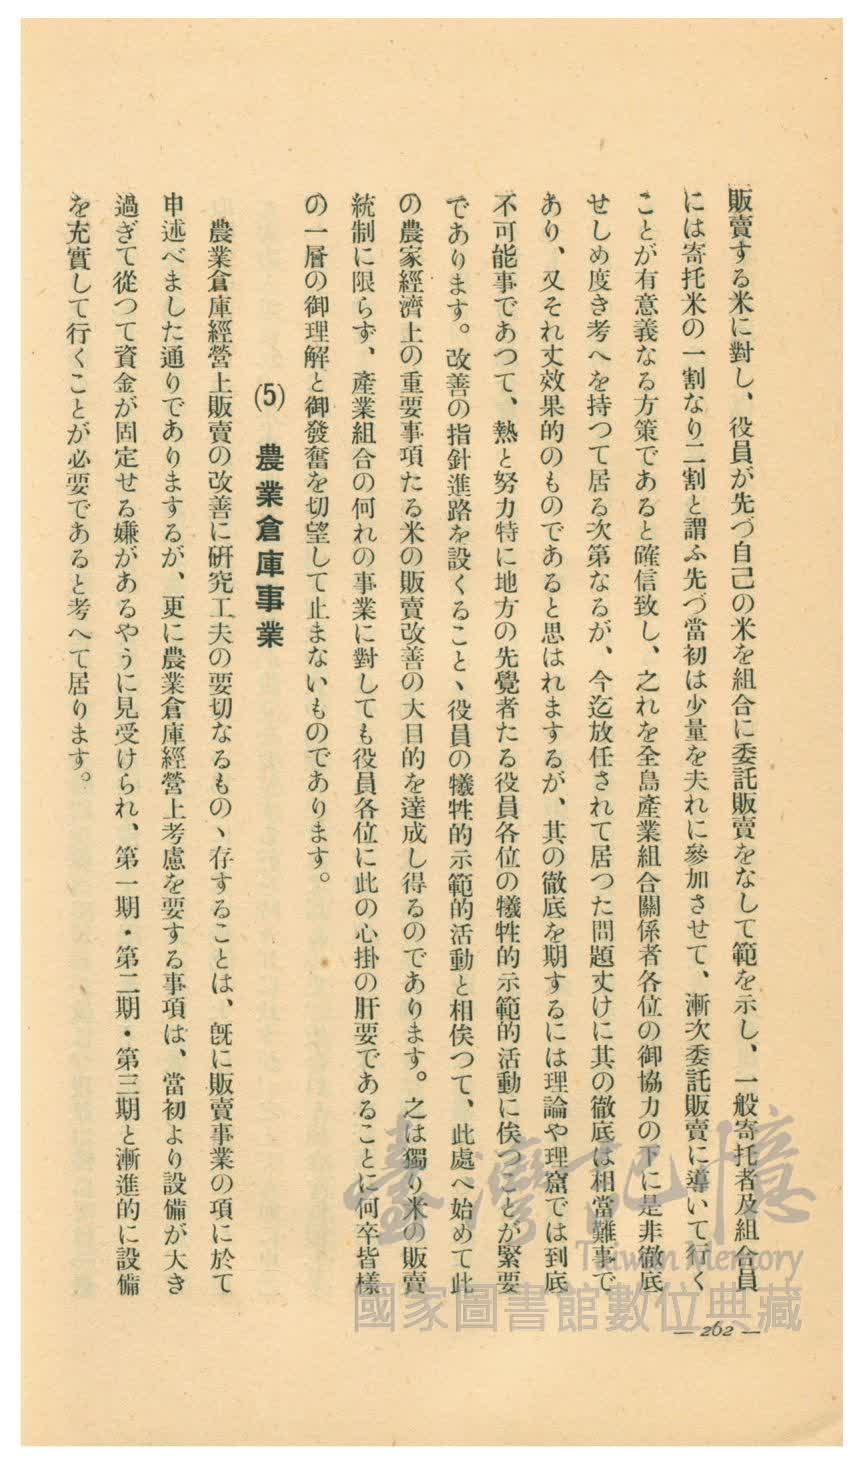 販賣する米に對し、役員が先づ自己の米を組合に委託販賣をなして範を示し、一般寄托者及組合員
には寄托米の一割なり二割と謂ふ先づ當初は少量を夫れに參加させて、漸次委託販賣に導いて行く
ことが有意義なる方策であると確信致し、之れを全島產業組合關係者各位の御協力の下に是非徹底
せしめ度き考へを持つて居る次第なるが、今迄放任されて居つた問題丈けに其の徹底は相當難事で
あり、又それ丈效果的のものであると思はれまするが、其の徹底を期するには理論や理窟では到底
不可能事であつて、熱と努力特に地方の先覺者たる役員各位の犧牲的示範的活動に俟つことが緊要
であります。改善の指針進路を設くること、役員の犧牲的示範的活動と相俟つて、此處へ始めて此
の農家經濟上の重要事項たる米の販賣改善の大目的を達成し得るのであります。之は獨り米の販賣
統制に限らず、產業組合の何れの事業に對しても役員各位に此の心掛の肝要であることに何卒皆樣
の一層の御理解と御發奮を切望して止まないものであります。
(5) 農業倉庫事業
農業倉庫經營上販賣の改善に硏究工夫の要切なるものヽ存することは、旣に販賣事業の項に於て
申述べました通りでありまするが、更に農業倉庫經營上考慮を要する事項は、當初より設備が大き
過ぎて從つて資金が固定せる嫌があるやうに見受けられ、第一期・第二期・第三期と漸進的に設備
を充實して行くことが必要であると考へて居ります。
— 262 —
臺灣記憶
Taiwan Memory
國家圖書館數位典藏